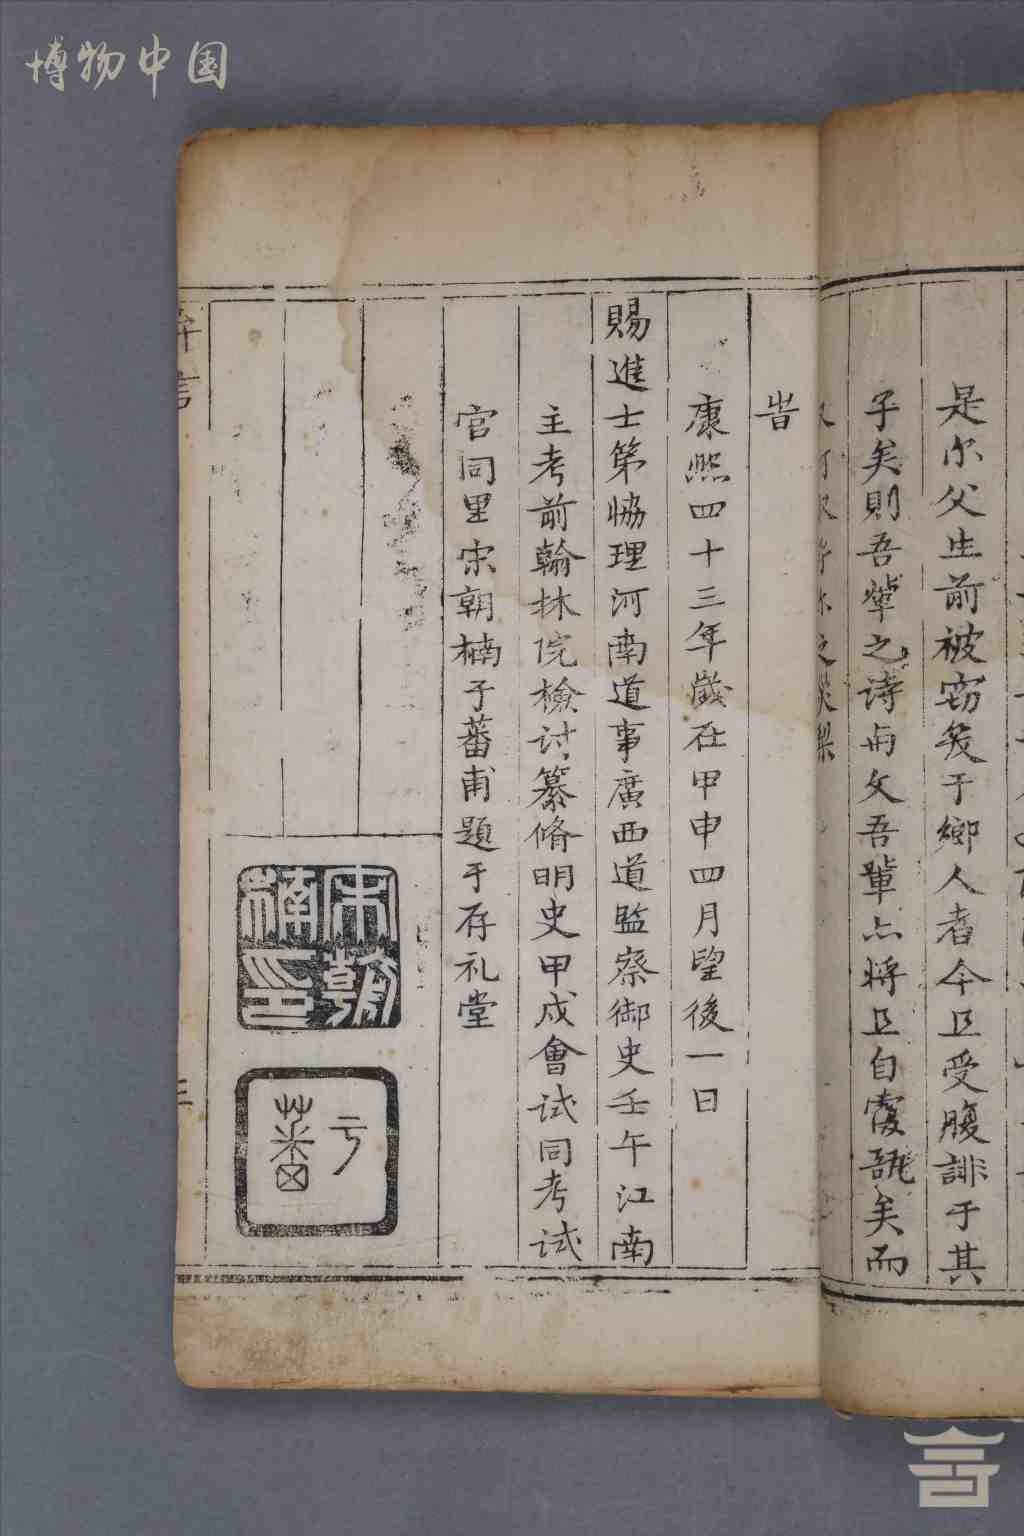 博物中国
是尔父生前被窃矣于鄉人者今且受腹誹于其
子矣則吾輩之诗与文吾輩亦将且自覆瓿矣而
告
康熙四十三年歲在甲申四月望後一日
賜進士第協理河南道事廣西道監察御史壬午江南
主考前翰林院檢讨纂脩明史甲戌會试同考试
官同里宋朝楠于蕃甫題于存礼堂
宋朝楠印
亏蕃
弁言
三